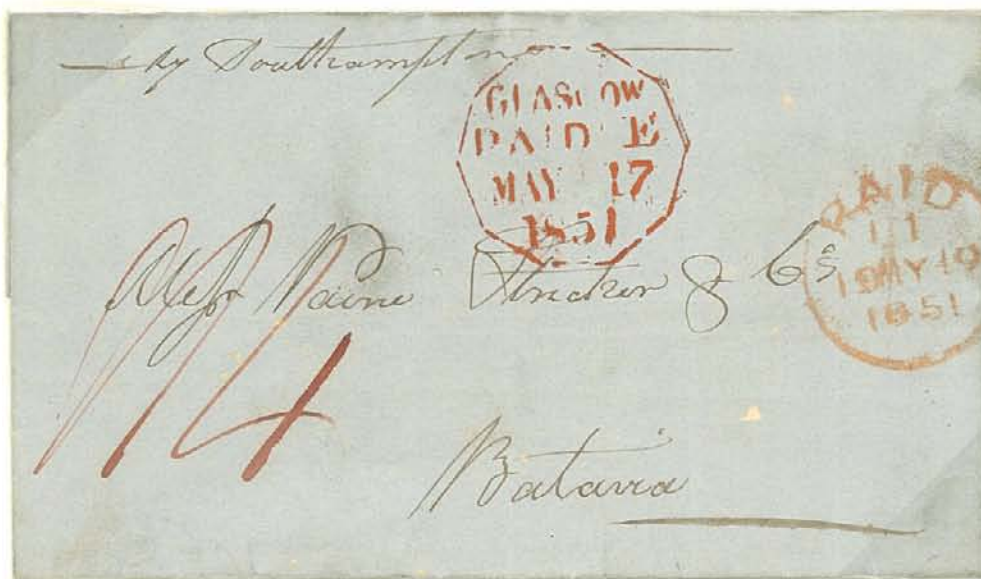 by Southampton
GLASGOW
PAID E
MAY 17
1851
PAID
11
19MY19
1851
Messrs Paine Stricker & Co
1/4
Batavia